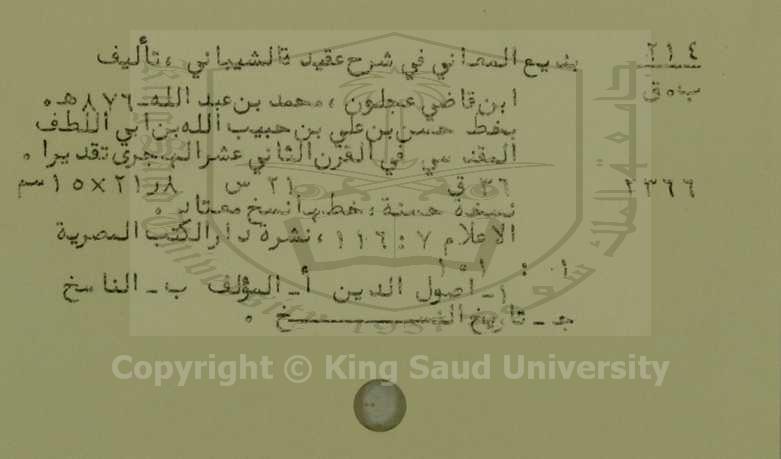 ٢١٤ بديع المعاني في شرح عقيدة الشيباني، تأليف
ب.ق ابن قاضي عجلون، محمد بن عبد الله ـ ٨٧٦هـ.
بخط حسن بن علي بن حبيب الله بن ابي اللطف
المقدسي في القرن الثاني عشر الهجري تقديرا.
٢٣٦٦ ٣٦ ق ٢١ س ٢١٫٨×١٥سم
نسخة حسنة، خطها نسخ معتاد.
الاعلام ٧: ١١٦، نشرة دار الكتب المصرية
١: ١٠١
١ـ اصول الدين أـ المؤلف ب ـ الناسخ
جـ ـ تاريخ النسخ.
Copyright © King Saud University